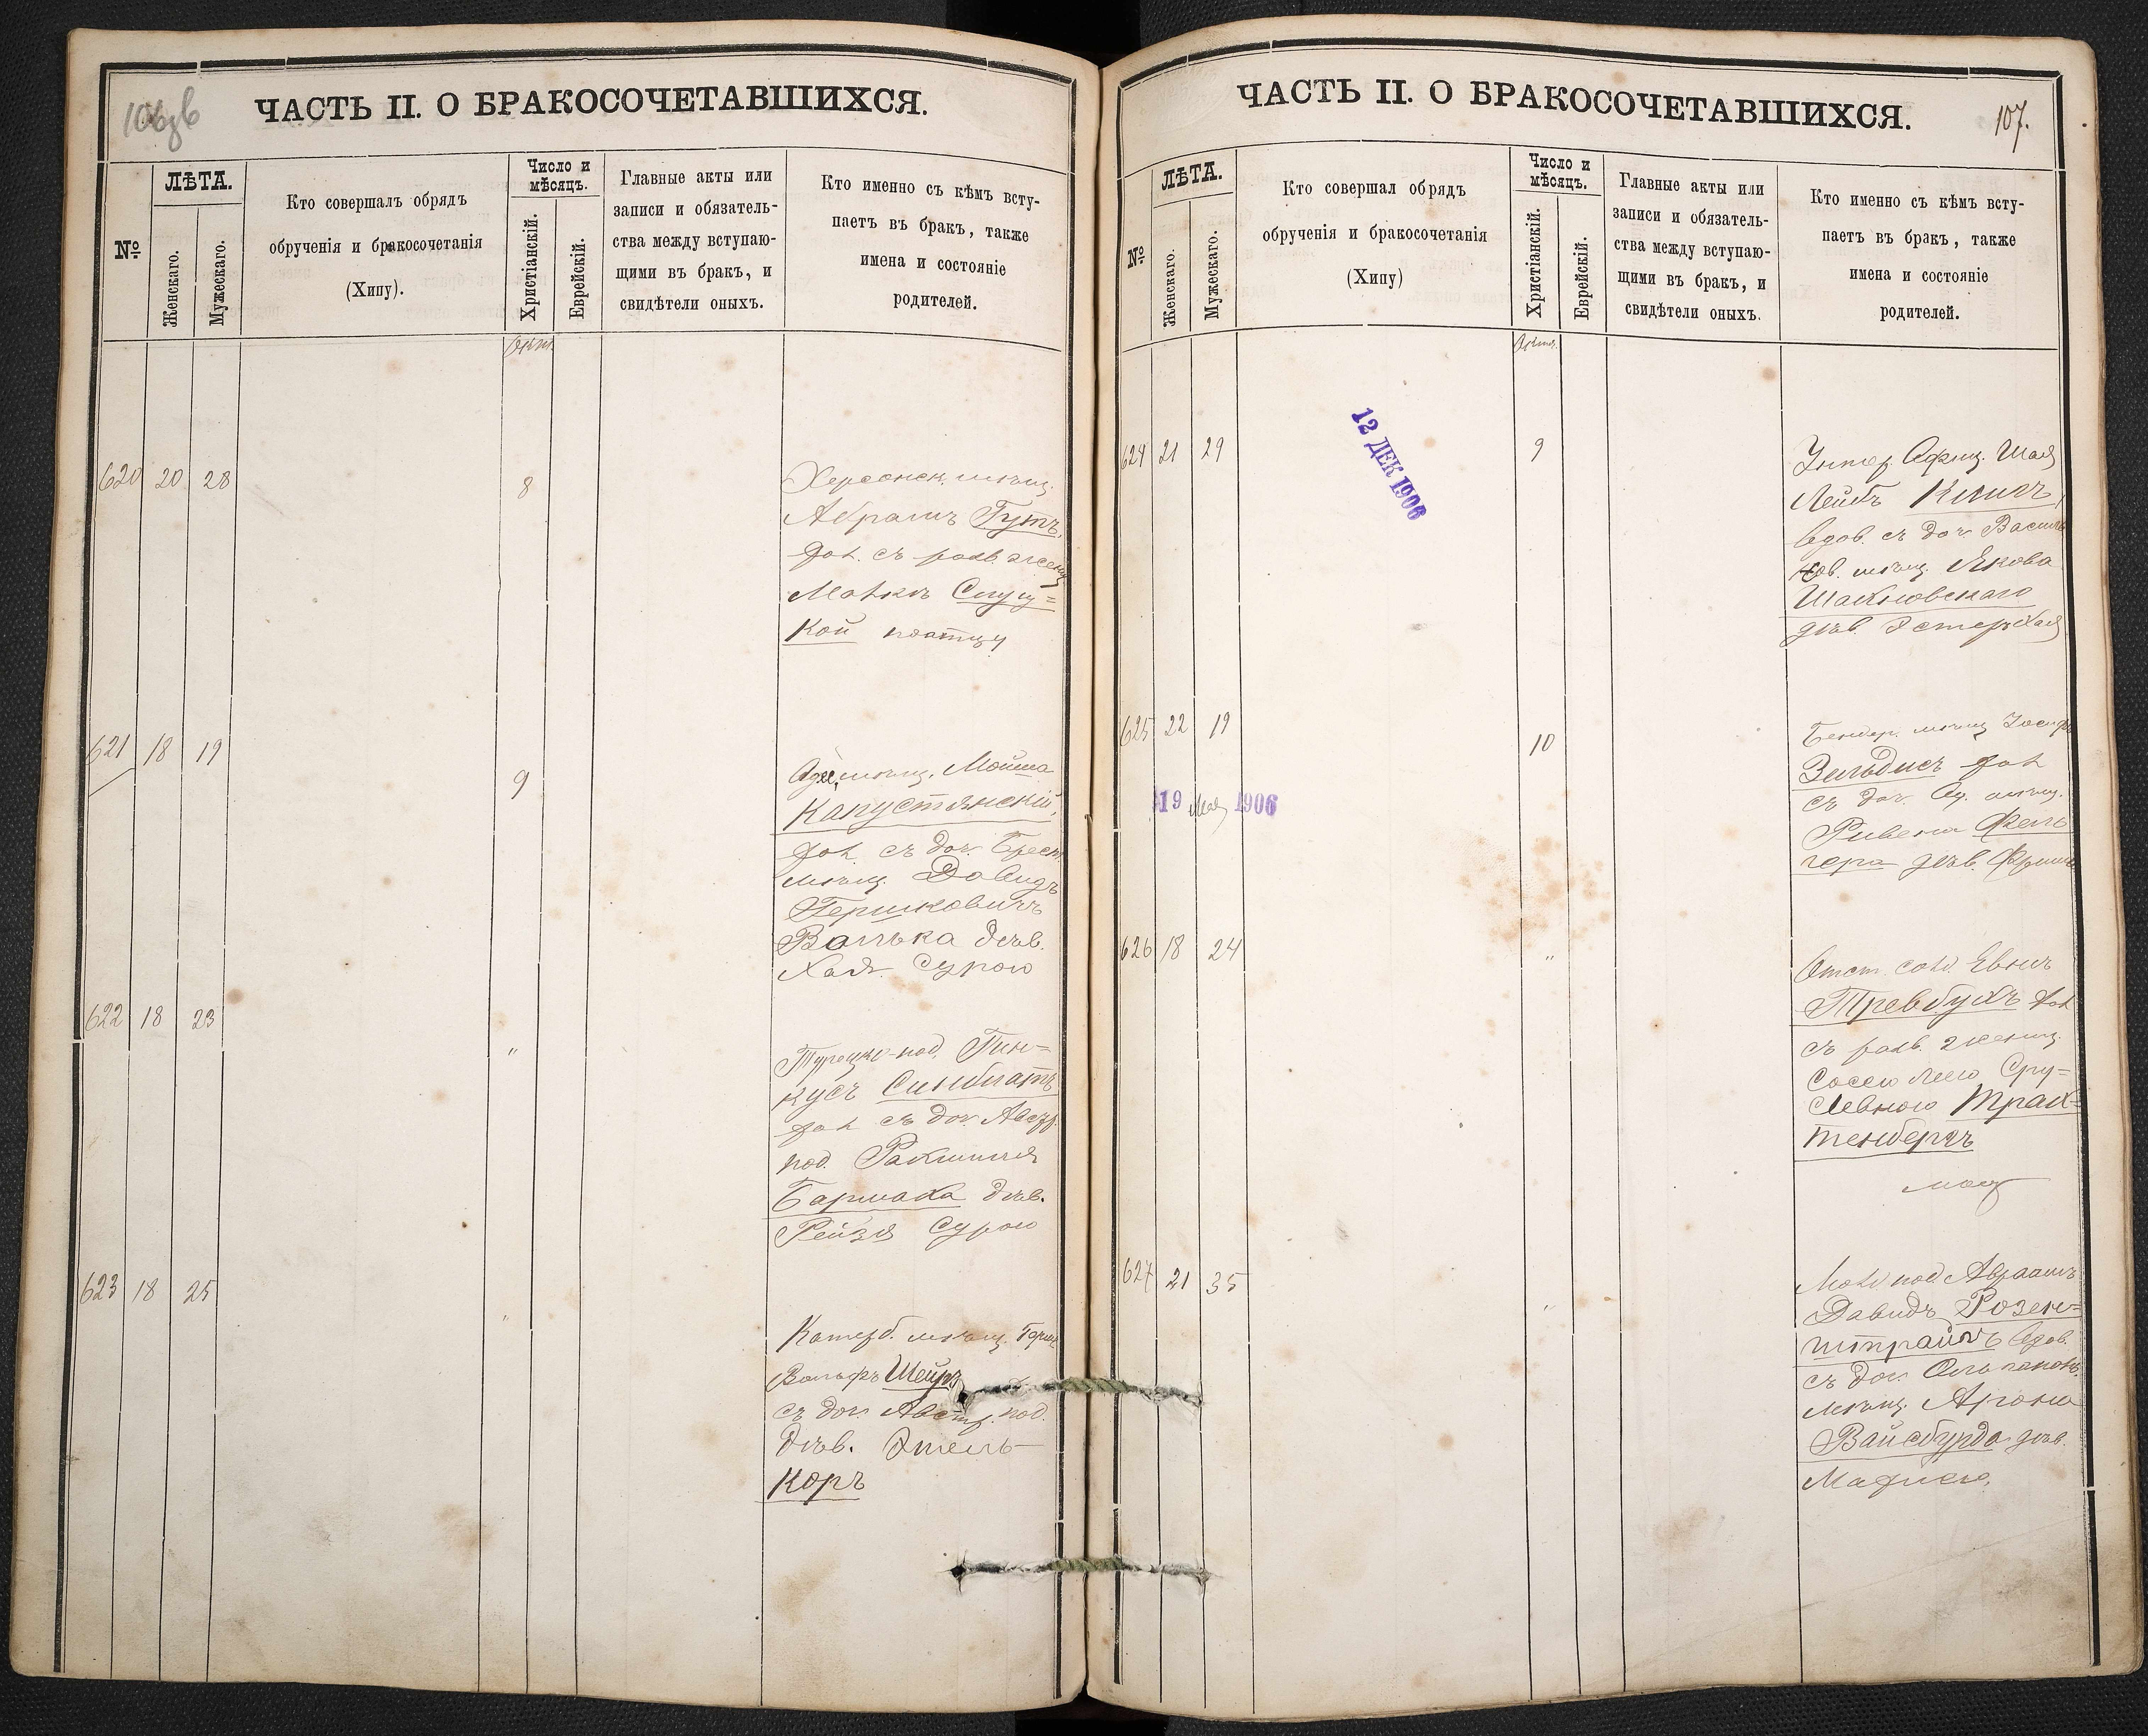 ЧАСТЬ II. О БРАКОСОЧЕТАВШИХСЯ.
№
ЛѢТА.
Женскаго.
Мужескаго.
Кто совершалъ обрядъ
обрученія и бракосочетанія
(Хипу).
Число и
мѣсяцъ.
Христіанскій.
Еврейскій.
Главные акты или
записи и обязатель-
ства между вступаю-
щими въ бракъ, и
свидѣтели оныхъ.
Кто именно съ кѣмъ всту-
паетъ въ бракъ, также
имена и состояніе
родителей.
620 20 28
8
Херсонск. мѣщ.
Абрамъ Гутъ,
хол. съ разв. женщ
Слуц=
кой
621 18 19
9
Одес. мѣщ. Мойша
Капустянскій,
хол. съ доч. Брест.
мѣщ. Давидъ
Гершковичъ
Волька дѣв.
Хая Сурою
622 18 23
"
Турецко-под. Пин=
кусъ
хол съ доч. Австр.
под.
Бармака дѣв.
Рейзя Сурою
623 18 25
"
Катерб. мѣщ. Герш
Вольфъ Шейръ
съ доч. Австр. под.
дѣв. Этель
Коръ
ЧАСТЬ II. О БРАКОСОЧЕТАВШИХСЯ.
107.
№
ЛѢТА.
Женскаго.
Мужескаго.
Кто совершал обрядъ
обрученія и бракосочетанія
(Хипу)
Число и
мѣсяцъ.
Христіанскій.
Еврейскій.
Главные акты или
записи и обязатель-
ства между вступаю-
щими въ бракъ, и
свидѣтели оныхъ.
Кто именно съ кѣмъ всту-
паетъ въ бракъ, также
имена и состояніе
родителей.
624 21 29
12 ДЕК 1906
9
Унтер. Офиц. Шая
Лейбъ
вдов. съ доч. Василь
ков. мѣщ. Якова
дѣв. Эстеръ Хая
625 22 19
10
19 Мая 1906
Бендер. мѣщ Іосифъ
Зельдисъ хол
съ доч. Од. мѣщ.
Рувена Фель
гера дѣв.
626 18 24
"
Отст. солд.
Превбухъ хол
съ разв. женщ.
Сру=
левною Трах=
тенбергъ
627 21 35
"
Молд. под. Авраамъ
Давидъ Розен=
штрайхъ вдов.
съ доч. Ольгопольс.
мѣщ. Арона
Вайсбурда дѣв.